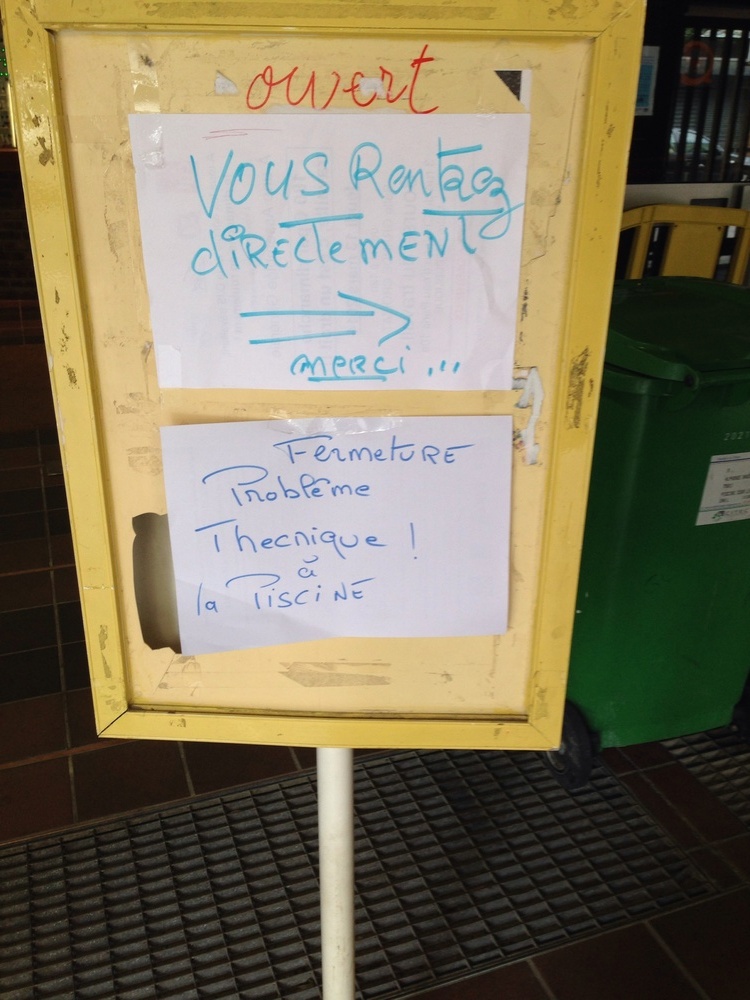 ouvert
VOUS Rentrez
diRECTEMENT
MERCi ...
FermeTURE
Problême
Thecnique !
à
la PISCINE